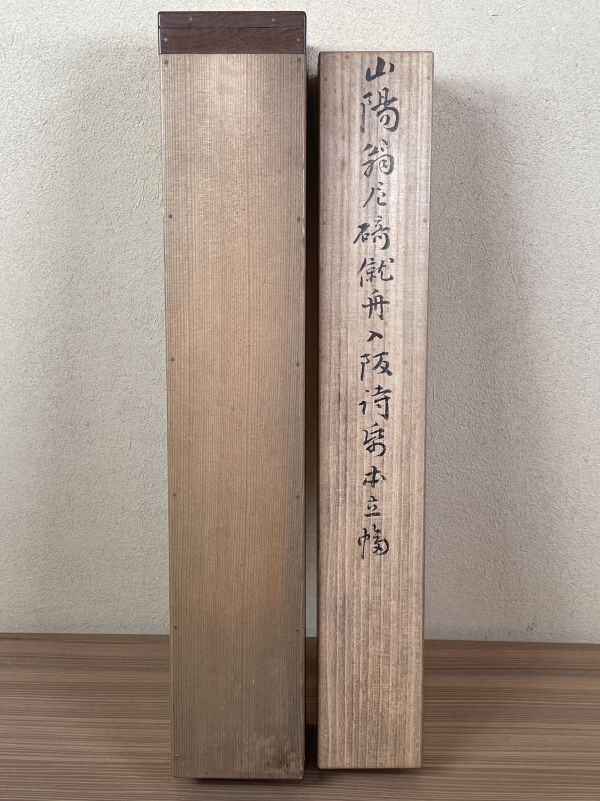 山陽翁尼碕僦舟入阪詩帋本立幅